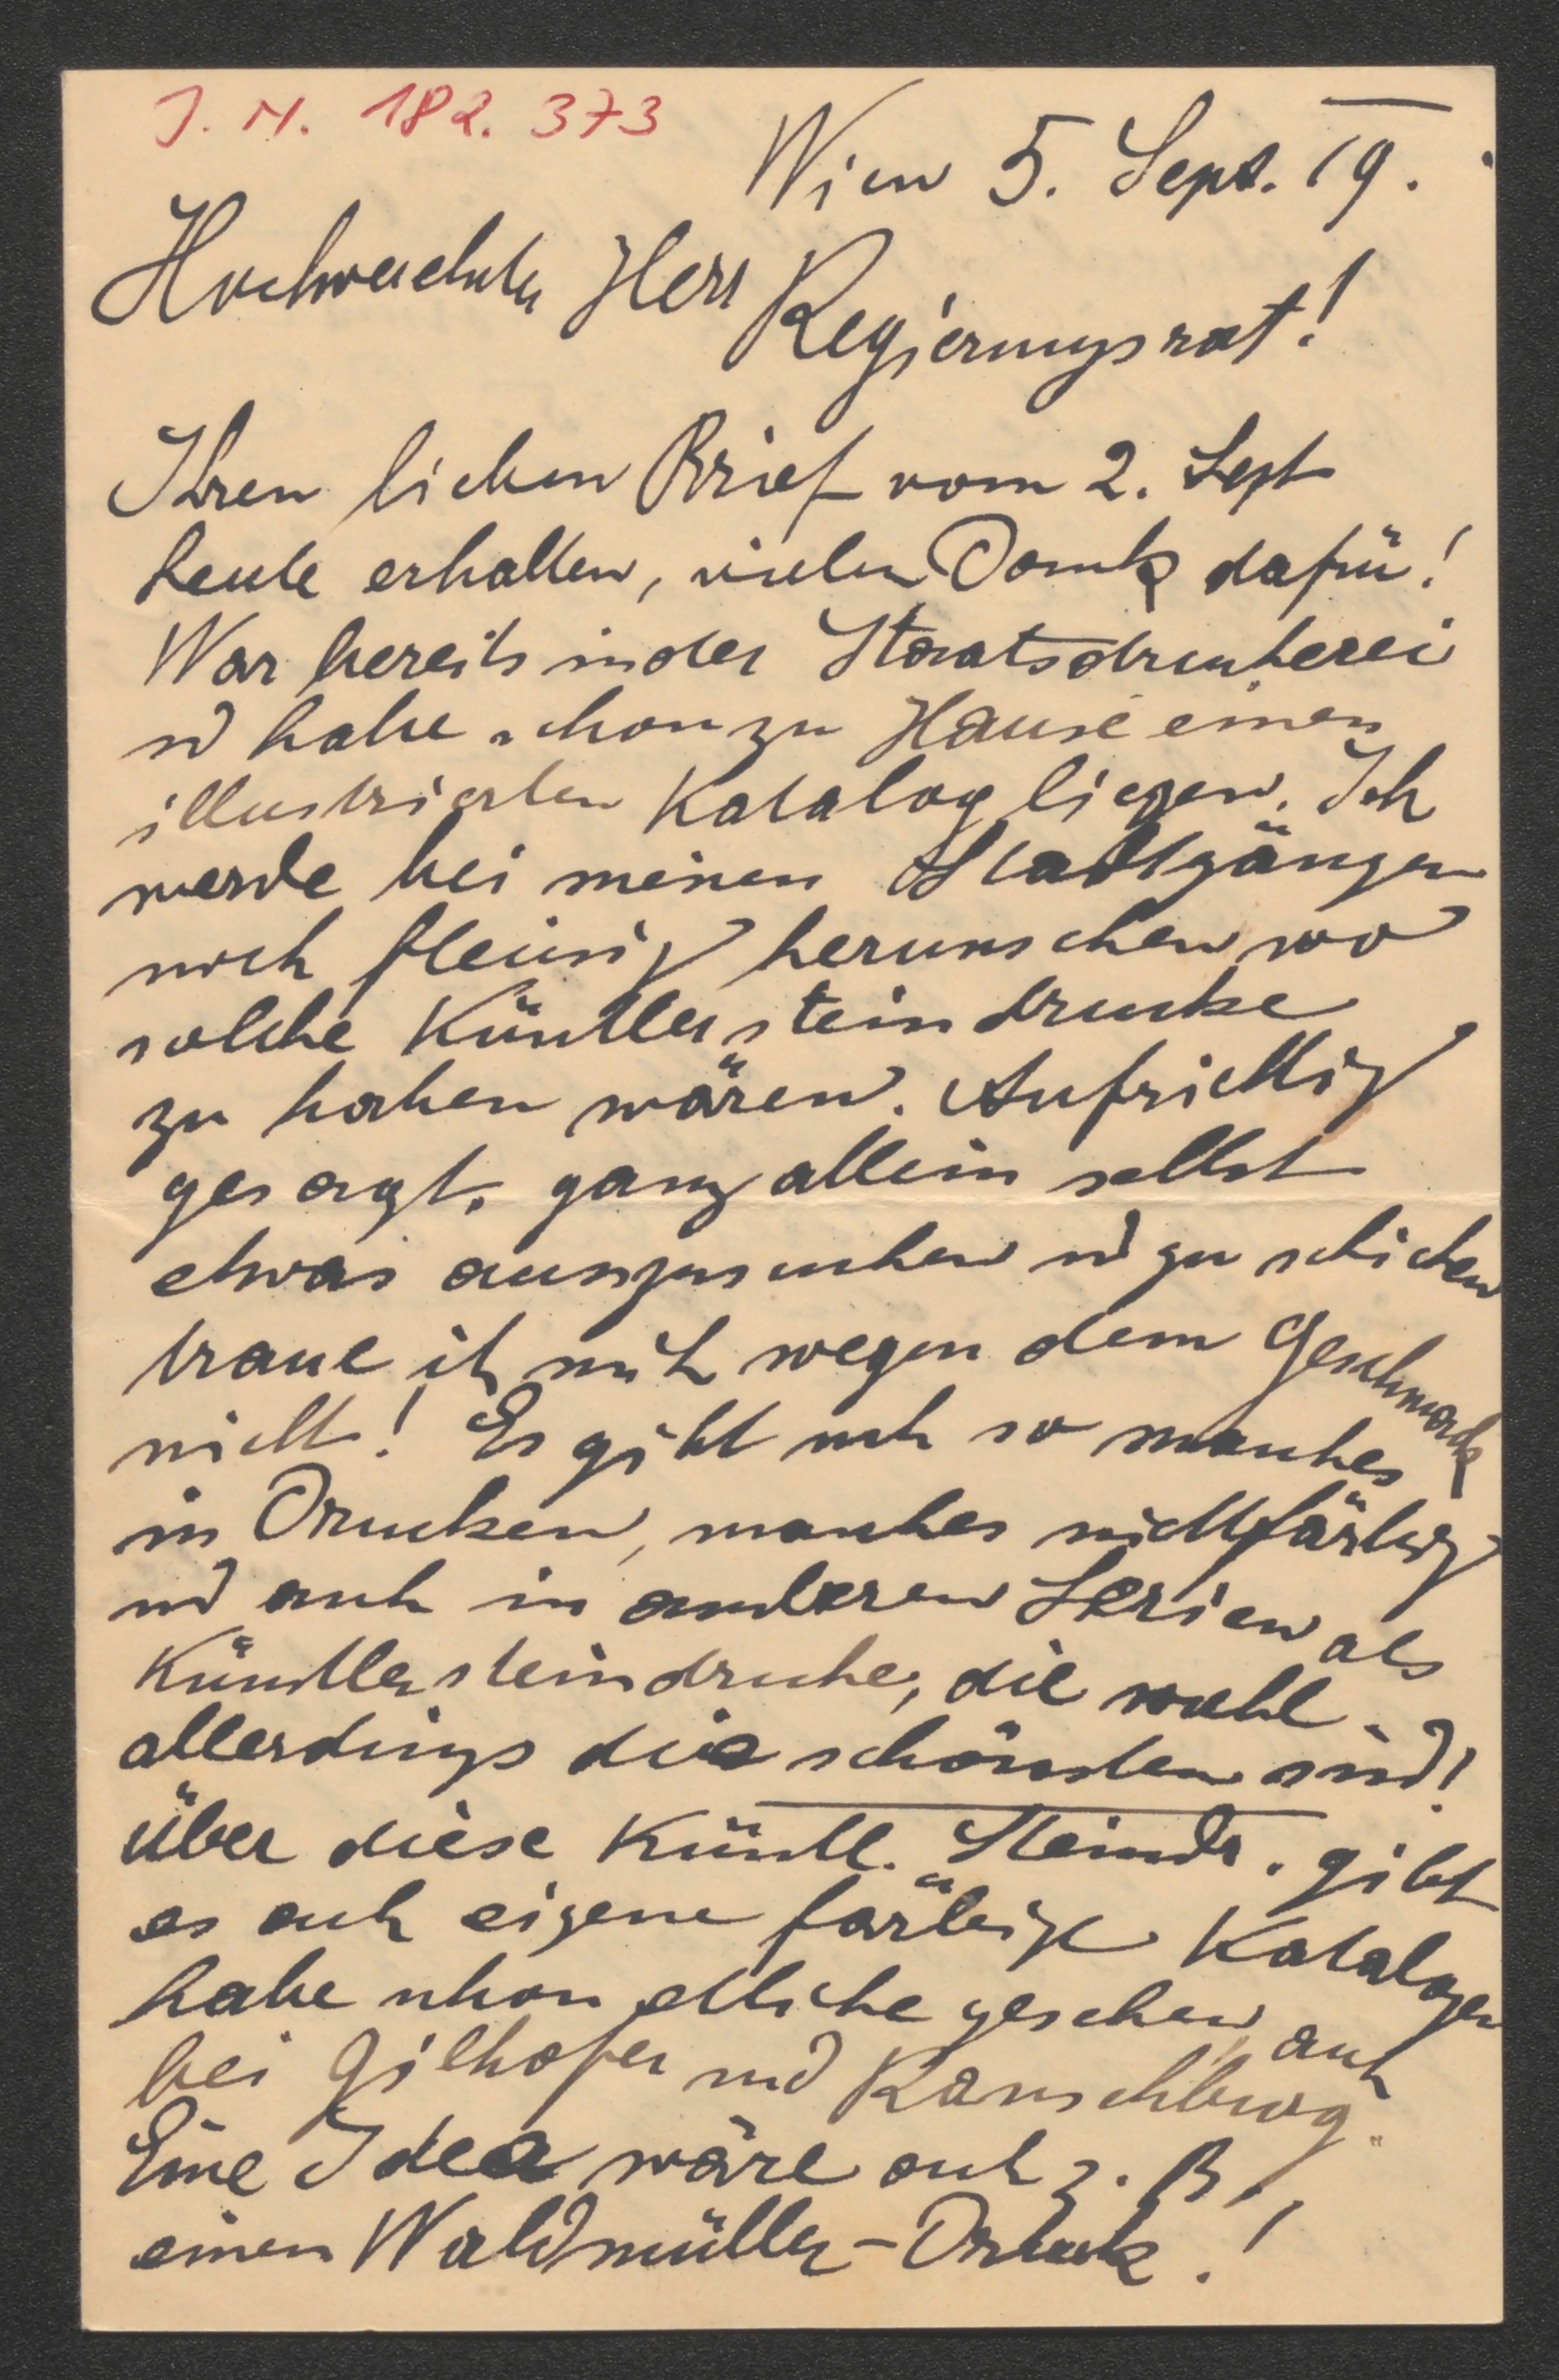 J. N. 182.373
Wien 5. Sept. 19.
Hochverehrter Herr
Regierungsrat!
Ihren lieben Brief vom 2. Sept
heute erhalten, vielen Dank dafür!
War bereits in der Staatsdruckerei
und habe schon zu Hause einen
illustrierten Katalog liegen. Ich
werde bei meinen Stadtgängen
noch fleissig herumsehen wo
solche Künstlersteindrucke
zu haben wären. Aufrichtig
gesagt, ganz allein selbst
etwas auszusuchen und zu schicken
traue ich mich wegen dem Geschmack
nicht! Es gibt noch so manches
in Drucken, manches nichtfärbig
und auch in anderen Serien als
Künstlersteindrucke, die wohl
allerdings die schönsten sind!
Über diese Künstl. Steindr. gibt
es auch eigene färbige Kataloge
habe schon etliche gesehen, auch
bei Gilhofer und Ranschburg.
Eine Idee wäre auch z. B.
einen Waldmüller-Druck!